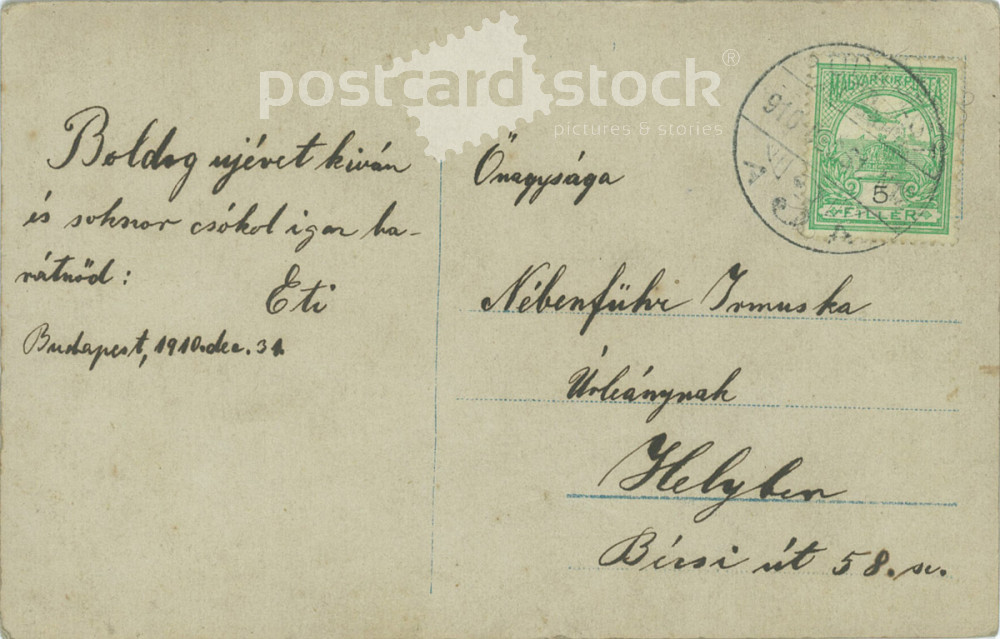 postcard stock®
pictures & stories
MAGYAR KIR. POSTA
5
FILLÉR
Boldog ujévet kíván
és sokszor csókol igaz ba-
rátnőd:
Eti
Budapest, 1910. dec. 31.
Őnagysága
Nébenführ Irmuska
Úrleánynak
Helyben
Bécsi út 58. sz.